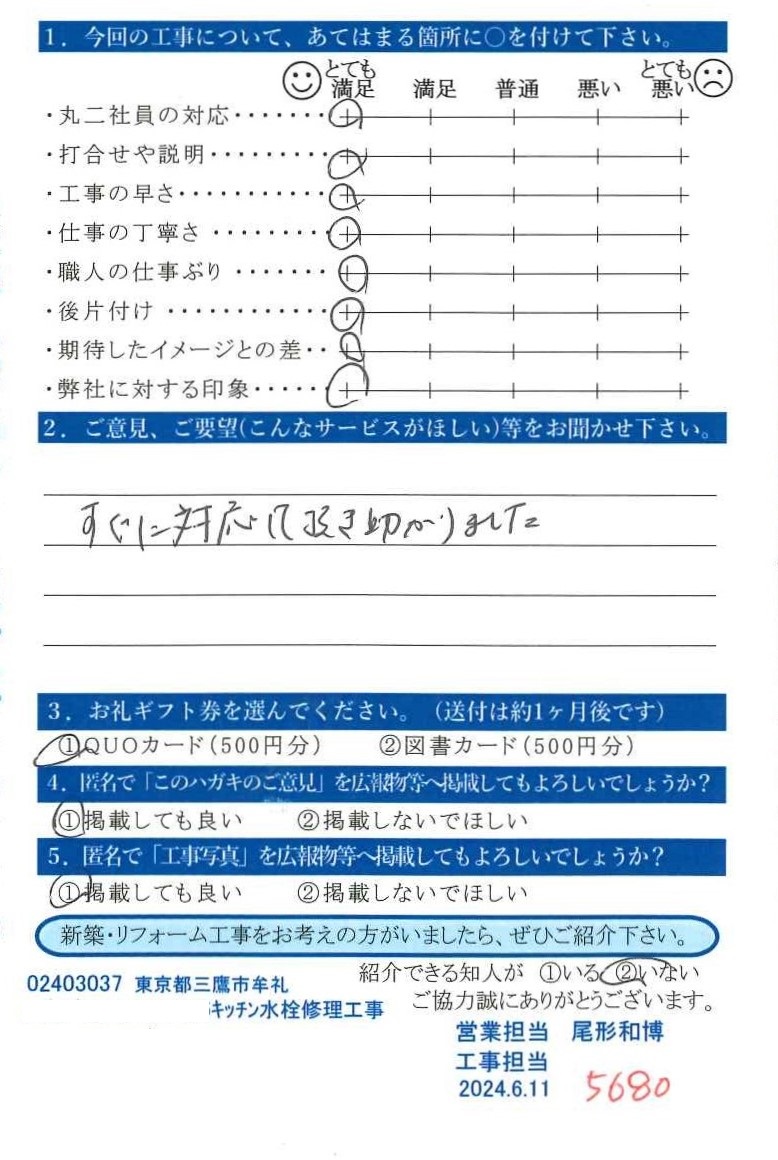 1．今回の工事について、あてはまる箇所に○を付けて下さい。
とても満足 満足 普通 悪い とても悪い
・丸二社員の対応・・・・・・・
・打合せや説明・・・・・・・・・
・工事の早さ・・・・・・・・・・・
・仕事の丁寧さ ・・・・・・・・
・職人の仕事ぶり ・・・・・・・
・後片付け ・・・・・・・・・・・・
・期待したイメージとの差・・
・弊社に対する印象・・・・・
2．ご意見、ご要望(こんなサービスがほしい)等をお聞かせ下さい。
すぐに対応して頂き助かりました
3．お礼ギフト券を選んでください。（送付は約1ヶ月後です）
①QUOカード（500円分） ②図書カード（500円分）
4．匿名で「このハガキのご意見」を広報物等へ掲載してもよろしいでしょうか？
①掲載しても良い ②掲載しないでほしい
5．匿名で「工事写真」を広報物等へ掲載してもよろしいでしょうか？
①掲載しても良い ②掲載しないでほしい
新築・リフォーム工事をお考えの方がいましたら、ぜひご紹介下さい。
紹介できる知人が ①いる ②いない
02403037 東京都三鷹市牟礼
ご協力誠にありがとうございます。
キッチン水栓修理工事
営業担当 尾形和博
工事担当
2024.6.11 5680